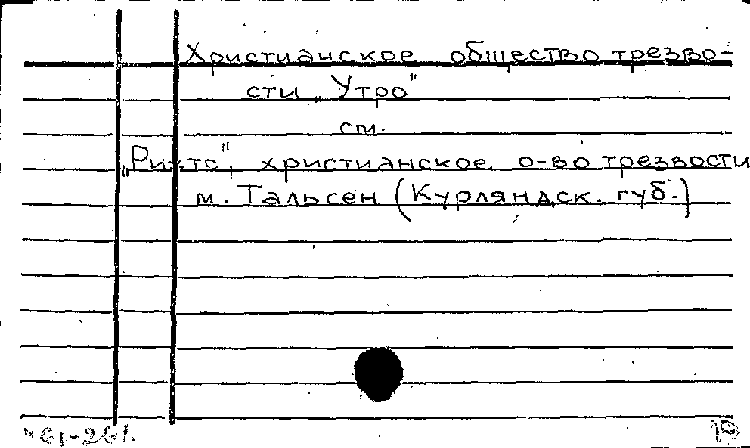 Христианское общество трезво-
сти „Утро"
см.
„Ритс", христианское о-во трезвости
м. Тальсен (Курляндск. губ.)